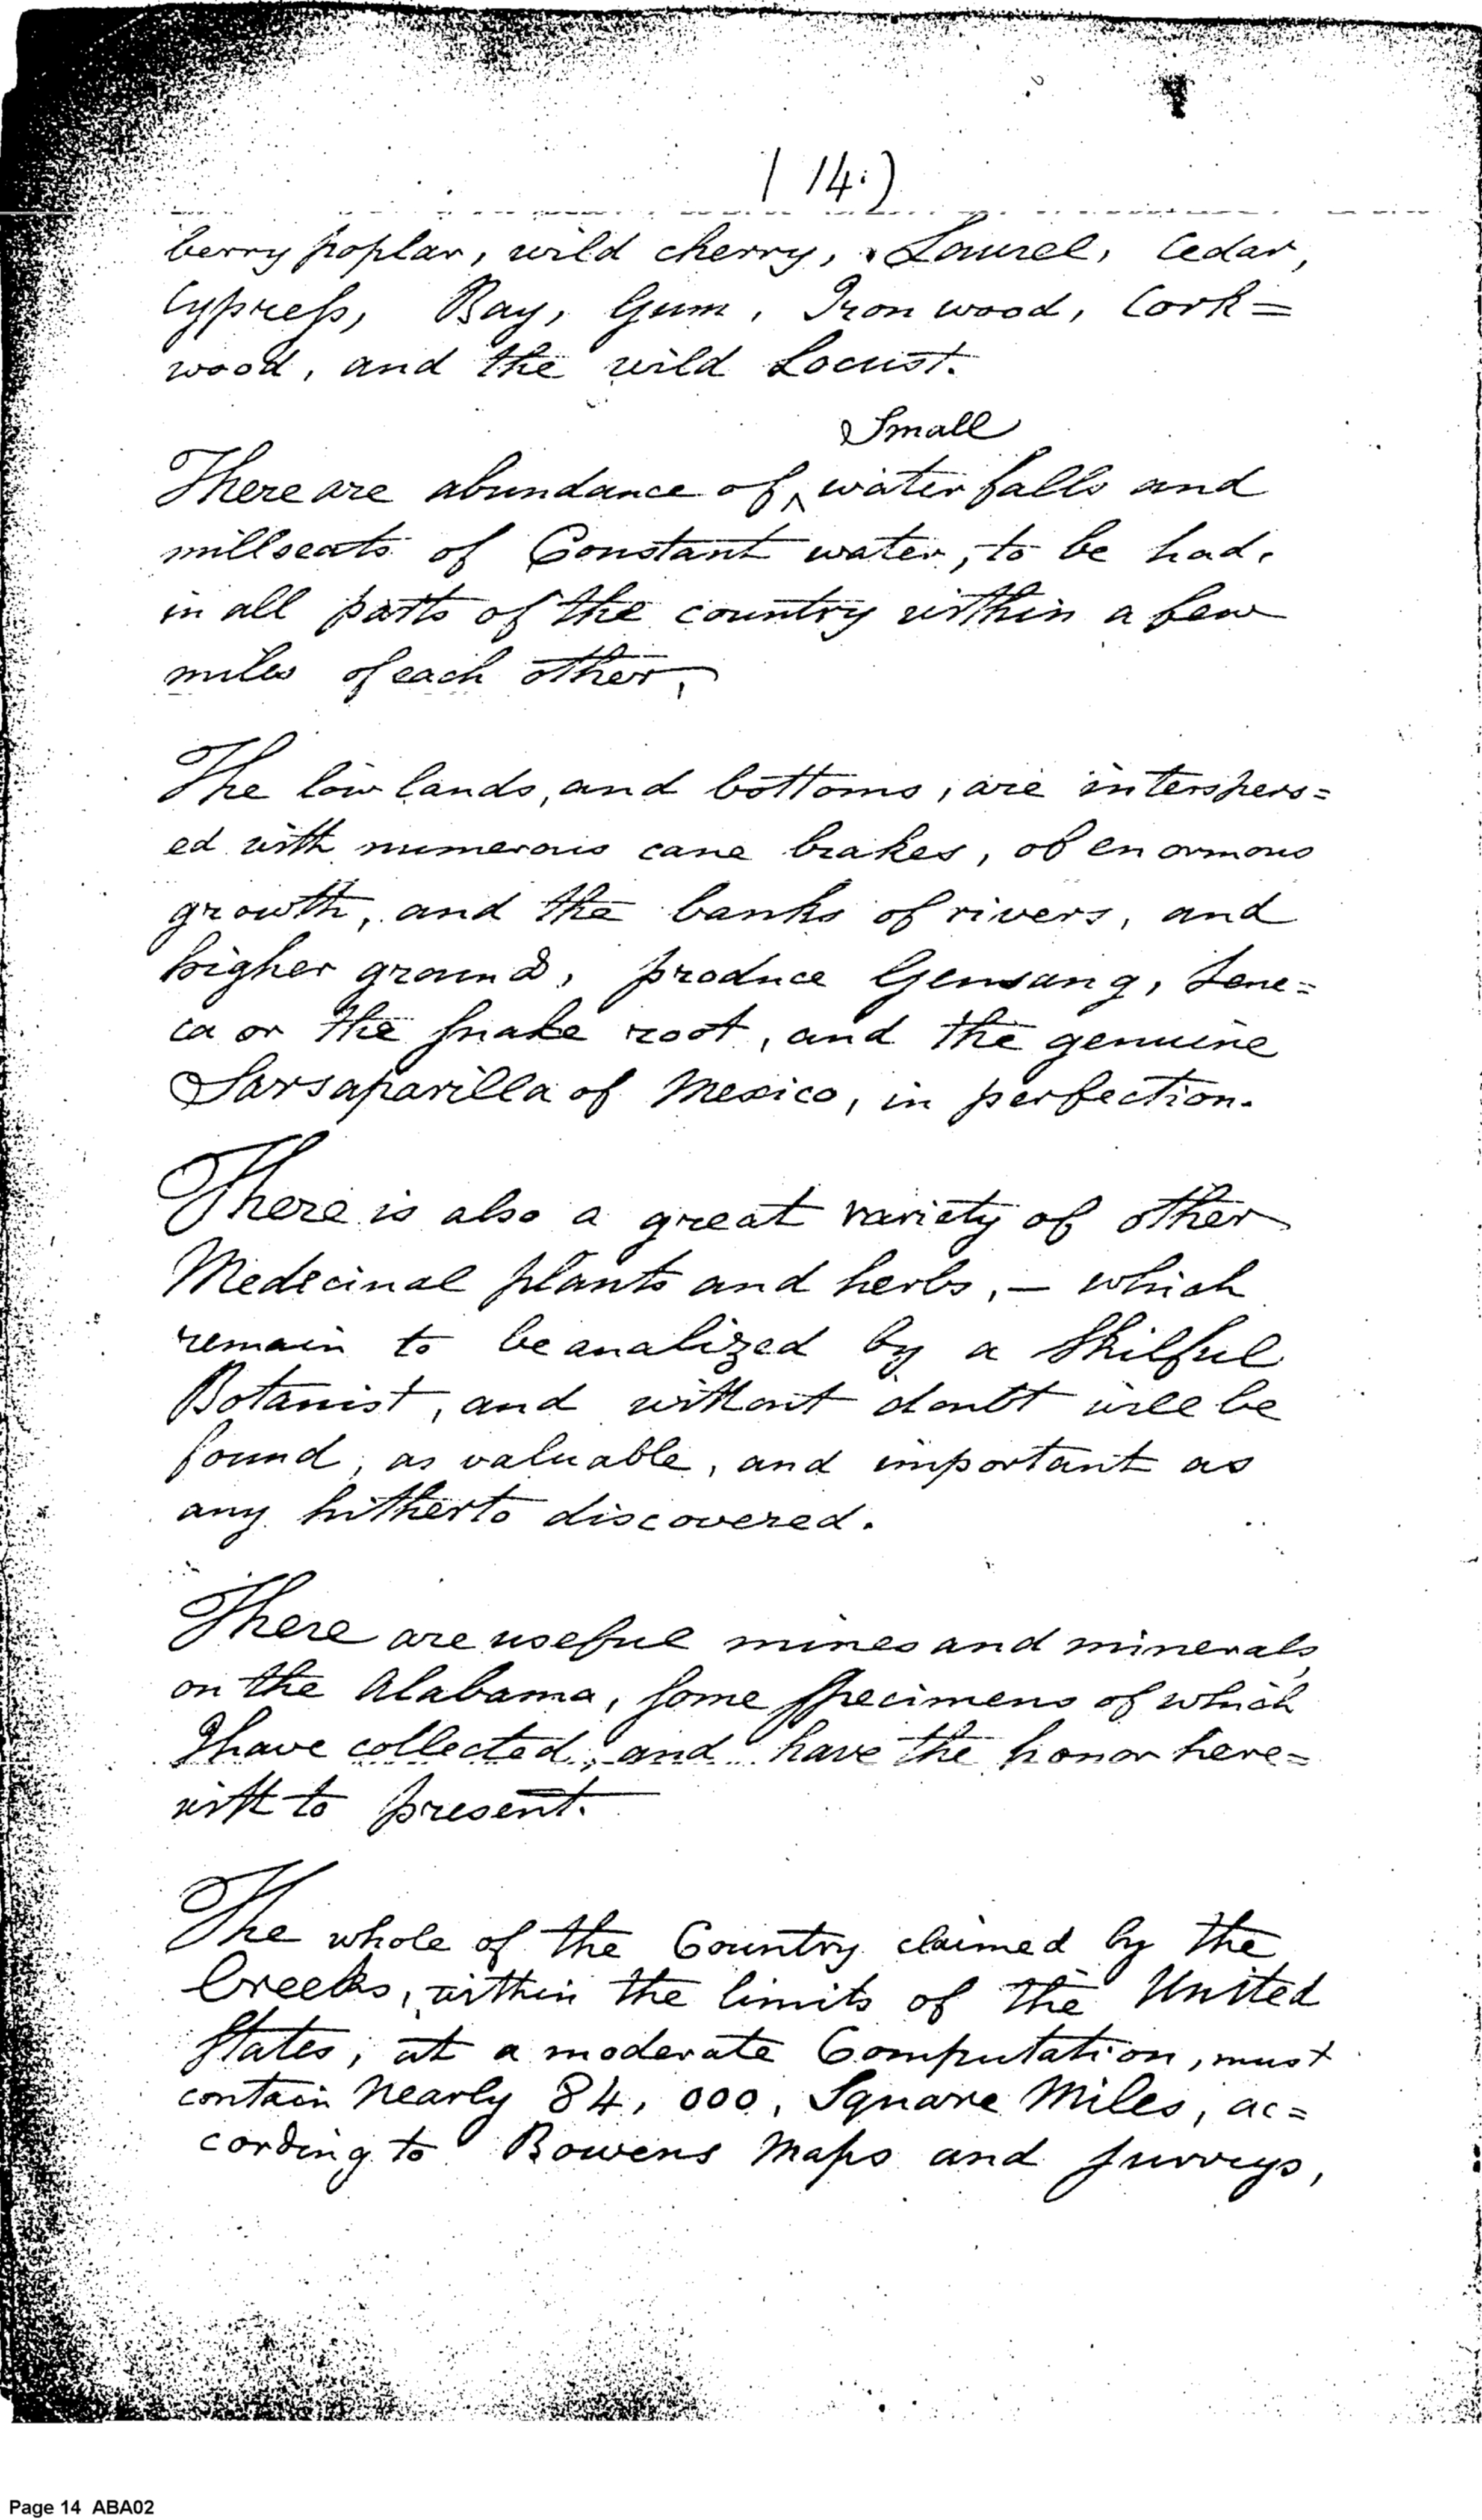 ( 14.)
berry poplar, wild cherry, Laurel, Cedar,
Cypress, Bay, Gum, Iron wood, Cork=
wood, and the wild Locust.
Small
There are abundance of ^ water falls and
millseats of Constant water, to be had.
in all parts of the country within a few
miles of each other.
The low lands, and bottoms, are interspers=
ed with numerous cane brakes, of enormous
growth, and the banks of rivers, and
higher ground, produce Gensang, Sene=
ca or the snake root, and the genuine
Sarsaparilla of Mexico, in perfection.
There is also a great variety of other
Medicinal plants and herbs, — which
remain to be analized by a Skilful
Botanist, and without doubt will be
found, as valuable, and important as
any hitherto discovered.
There are useful mines and minerals
on the Alabama, some specimens of which
I have collected, and have the honor here=
with to present.
The whole of the Country claimed by the
Creeks, within the limits of the United
States, at a moderate Computation, must
contain nearly 84,000, Square Miles, ac=
cording to Bowens Maps and surveys,
Page 14 ABA02